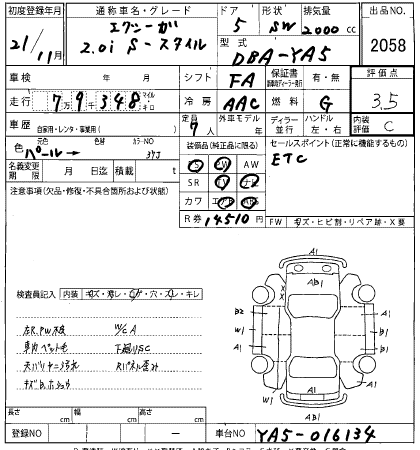 初度登録年月 通称車名・グレード ドア 形状 排気量 出品NO
21/11月 エクシーガ 2.0i S-スタイル 5 SW 2000cc 2058
型式 DBA-YA5
車検 年 月 シフト FA 保証書 有・無 評価点
走行 7万9千348 マイル キロ 冷房 AAC 燃料 G 3.5
車歴 自家用・レンタ・事業用( ) 定員 7人 外車モデル 年 ディーラー 並行 ハンドル 左・右 内装評価 C
色 元色 パール 色替 カラーNO 37J
装備品(純正品に限る) セールスポイント(正常に機能するもの)
PS PW AW ETC
名義変更期限 月 日迄 積載 t SR TV ナビ
注意事項(欠品・修復・不具合箇所および状態) カワ エアB ABS
R券 14510円 FW キズ・ヒビ割・リペア跡・X要
A1
AB1
検査員記入 内装 キズ・汚レ・コゲ・穴・スレ・キレ
B2 A1
W1 W1
A1 A1
左R.PW不良 W/C A
車内ペット毛 下廻りSC
天バリヤニヨゴレ Rパネル歪み
A1
AB1
長さ cm 幅 cm 高さ cm
登録NO ー 車台NO YA5-016134